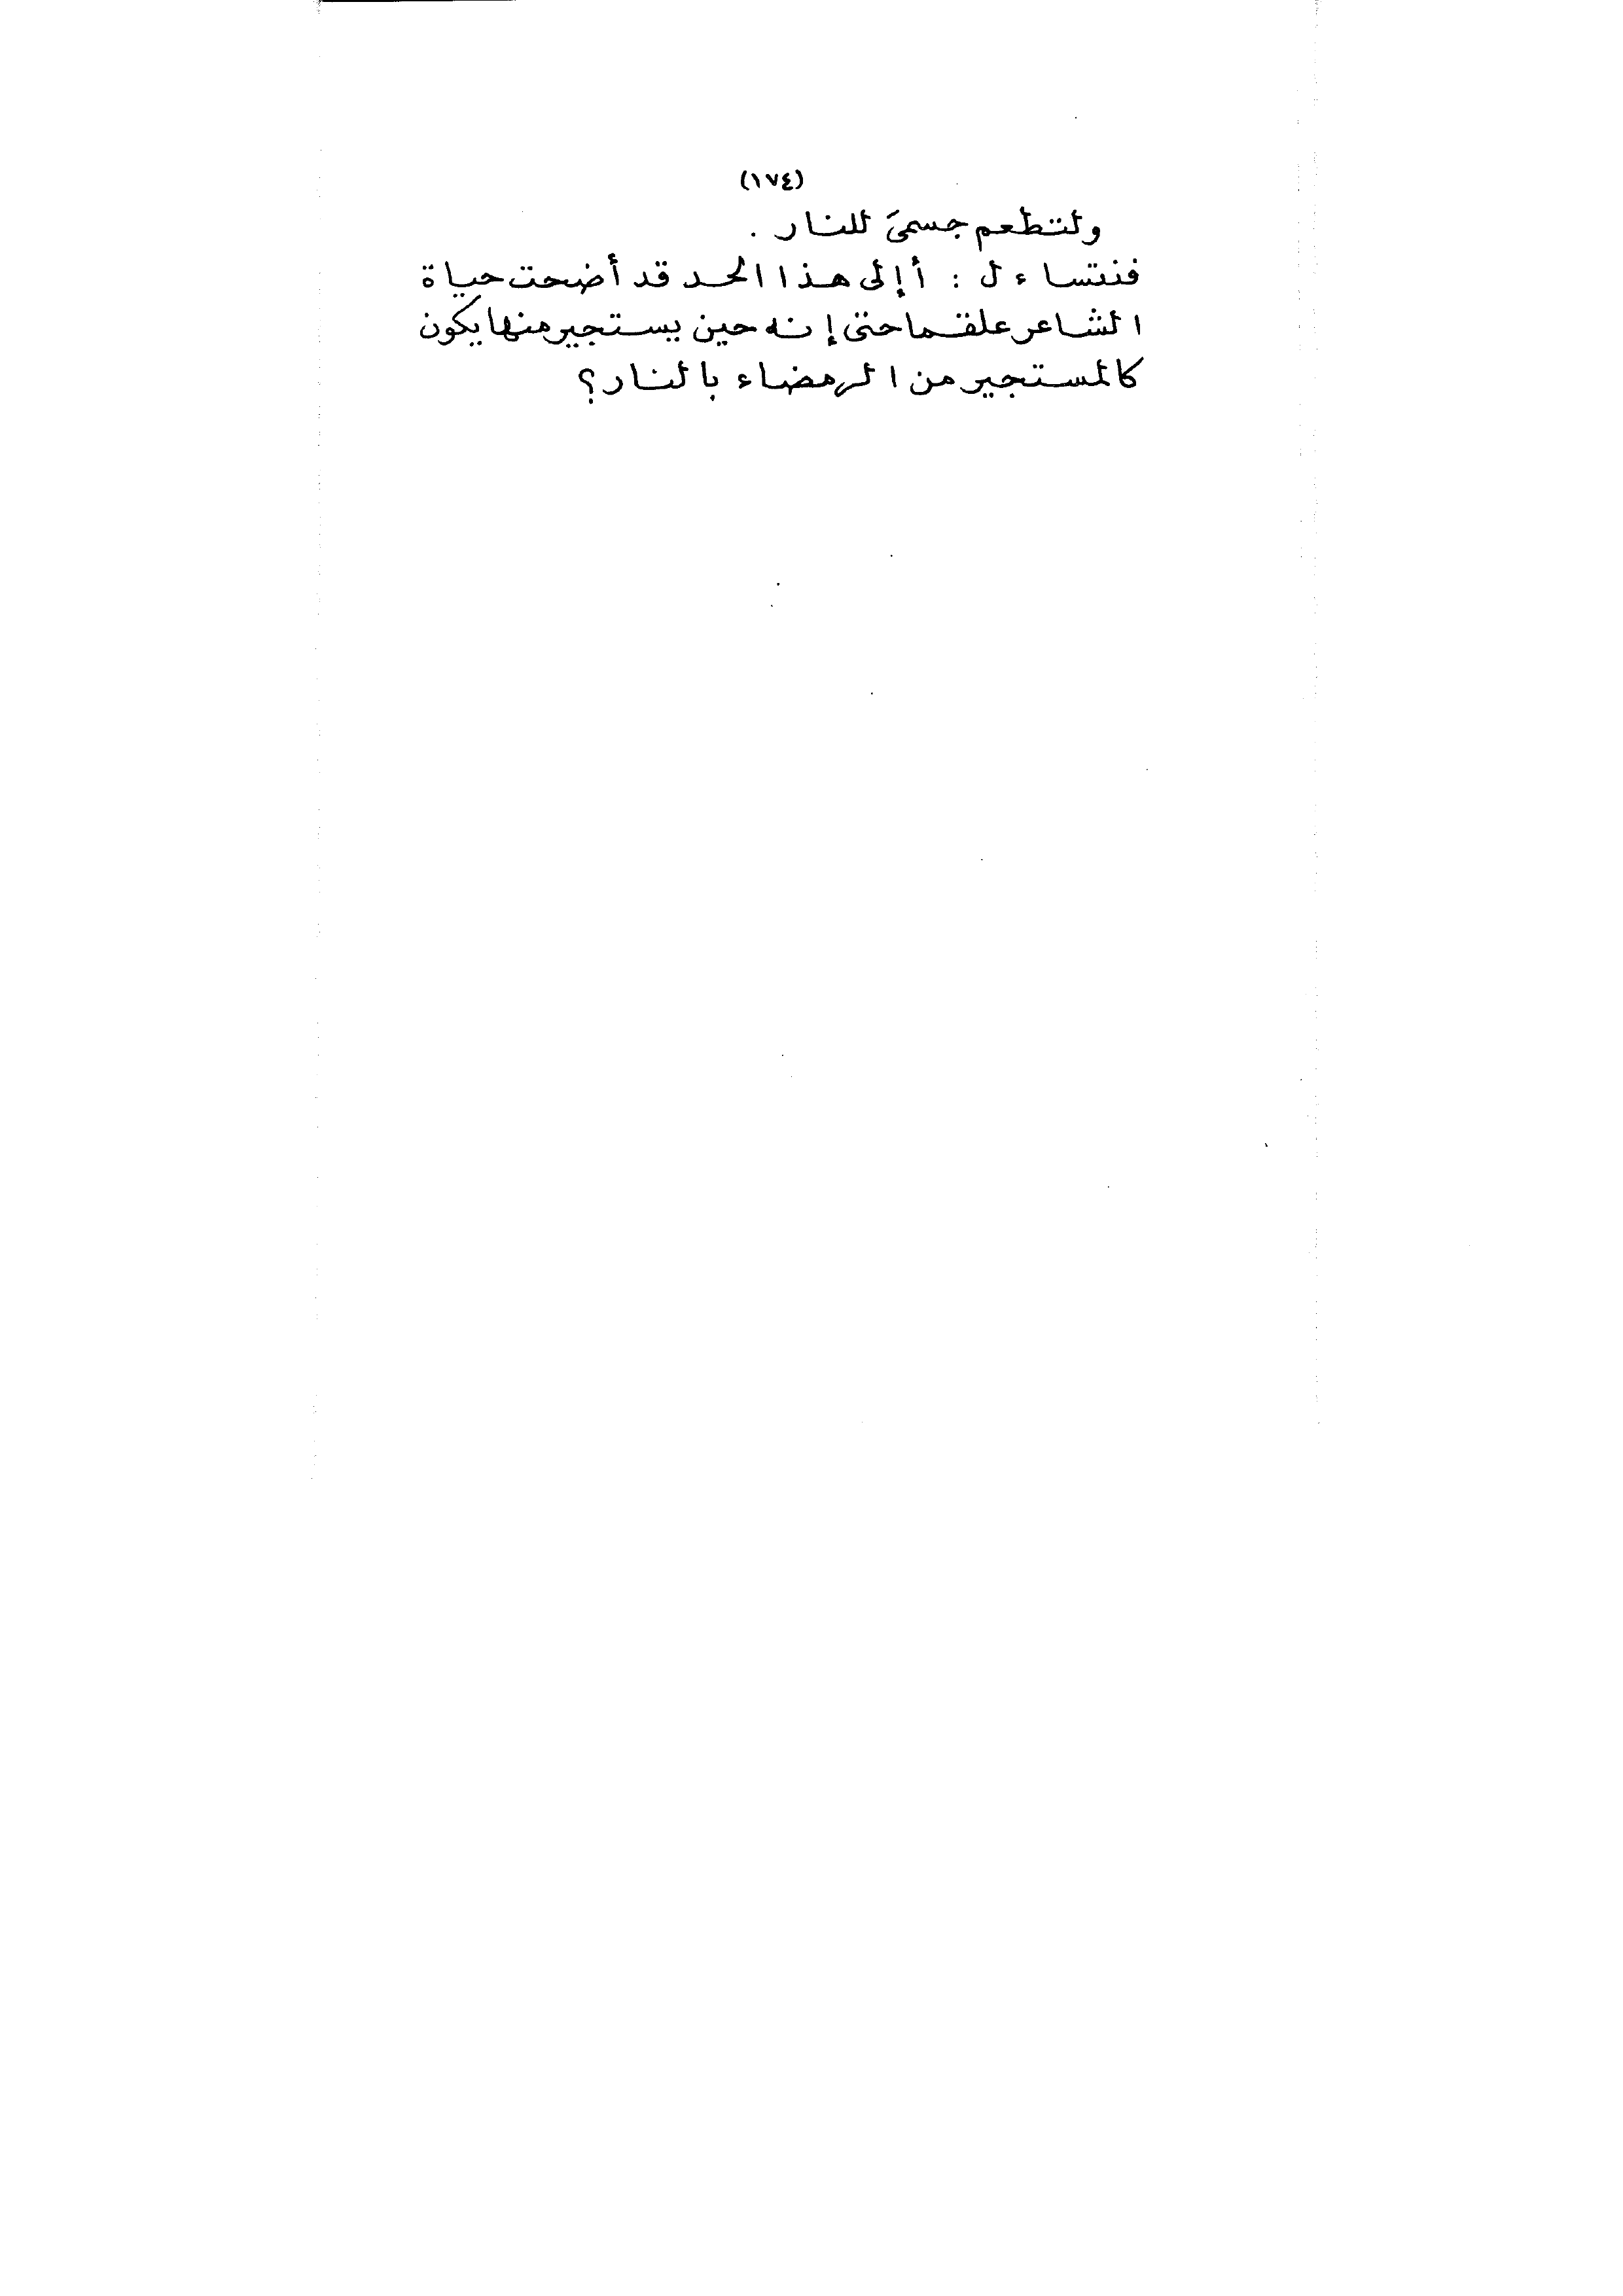 (١٧٤)
ولتطعم جسمىَ للنار .
فنتساءل : أإلى هذا الحد قد أضحت حياة
الشاعر علقما حتى إنه حين يستجير منها يكون
كالمستجير من الرمضاء بالنار؟